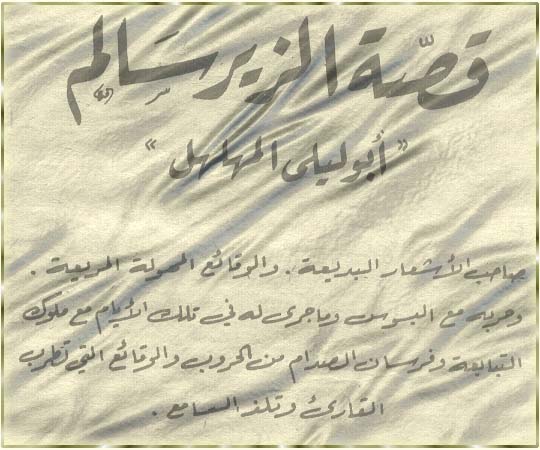 قصّة الزير سالم
« أبو ليلى المهلهل »
صاحب الأشعار البديعة . والوقائع المهولة المريعة .
وحربه مع البسوس وما جرى له في تلك الأيام مع ملوك
التبابعة وفرسان الصدام من الحروب والوقائع التي تطرب
القارئ وتلذ السامع .